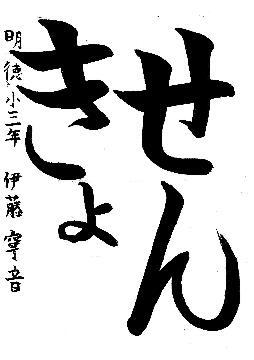 せん
きょ
明徳小三年 伊藤寧音